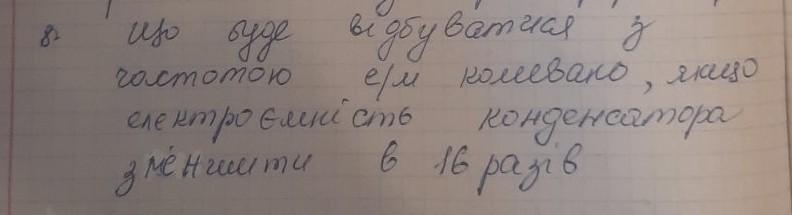 8. що буде відбуватися з
частотою е/м коливано, якщо
електроємність конденсатора
зменшити в 16 разів